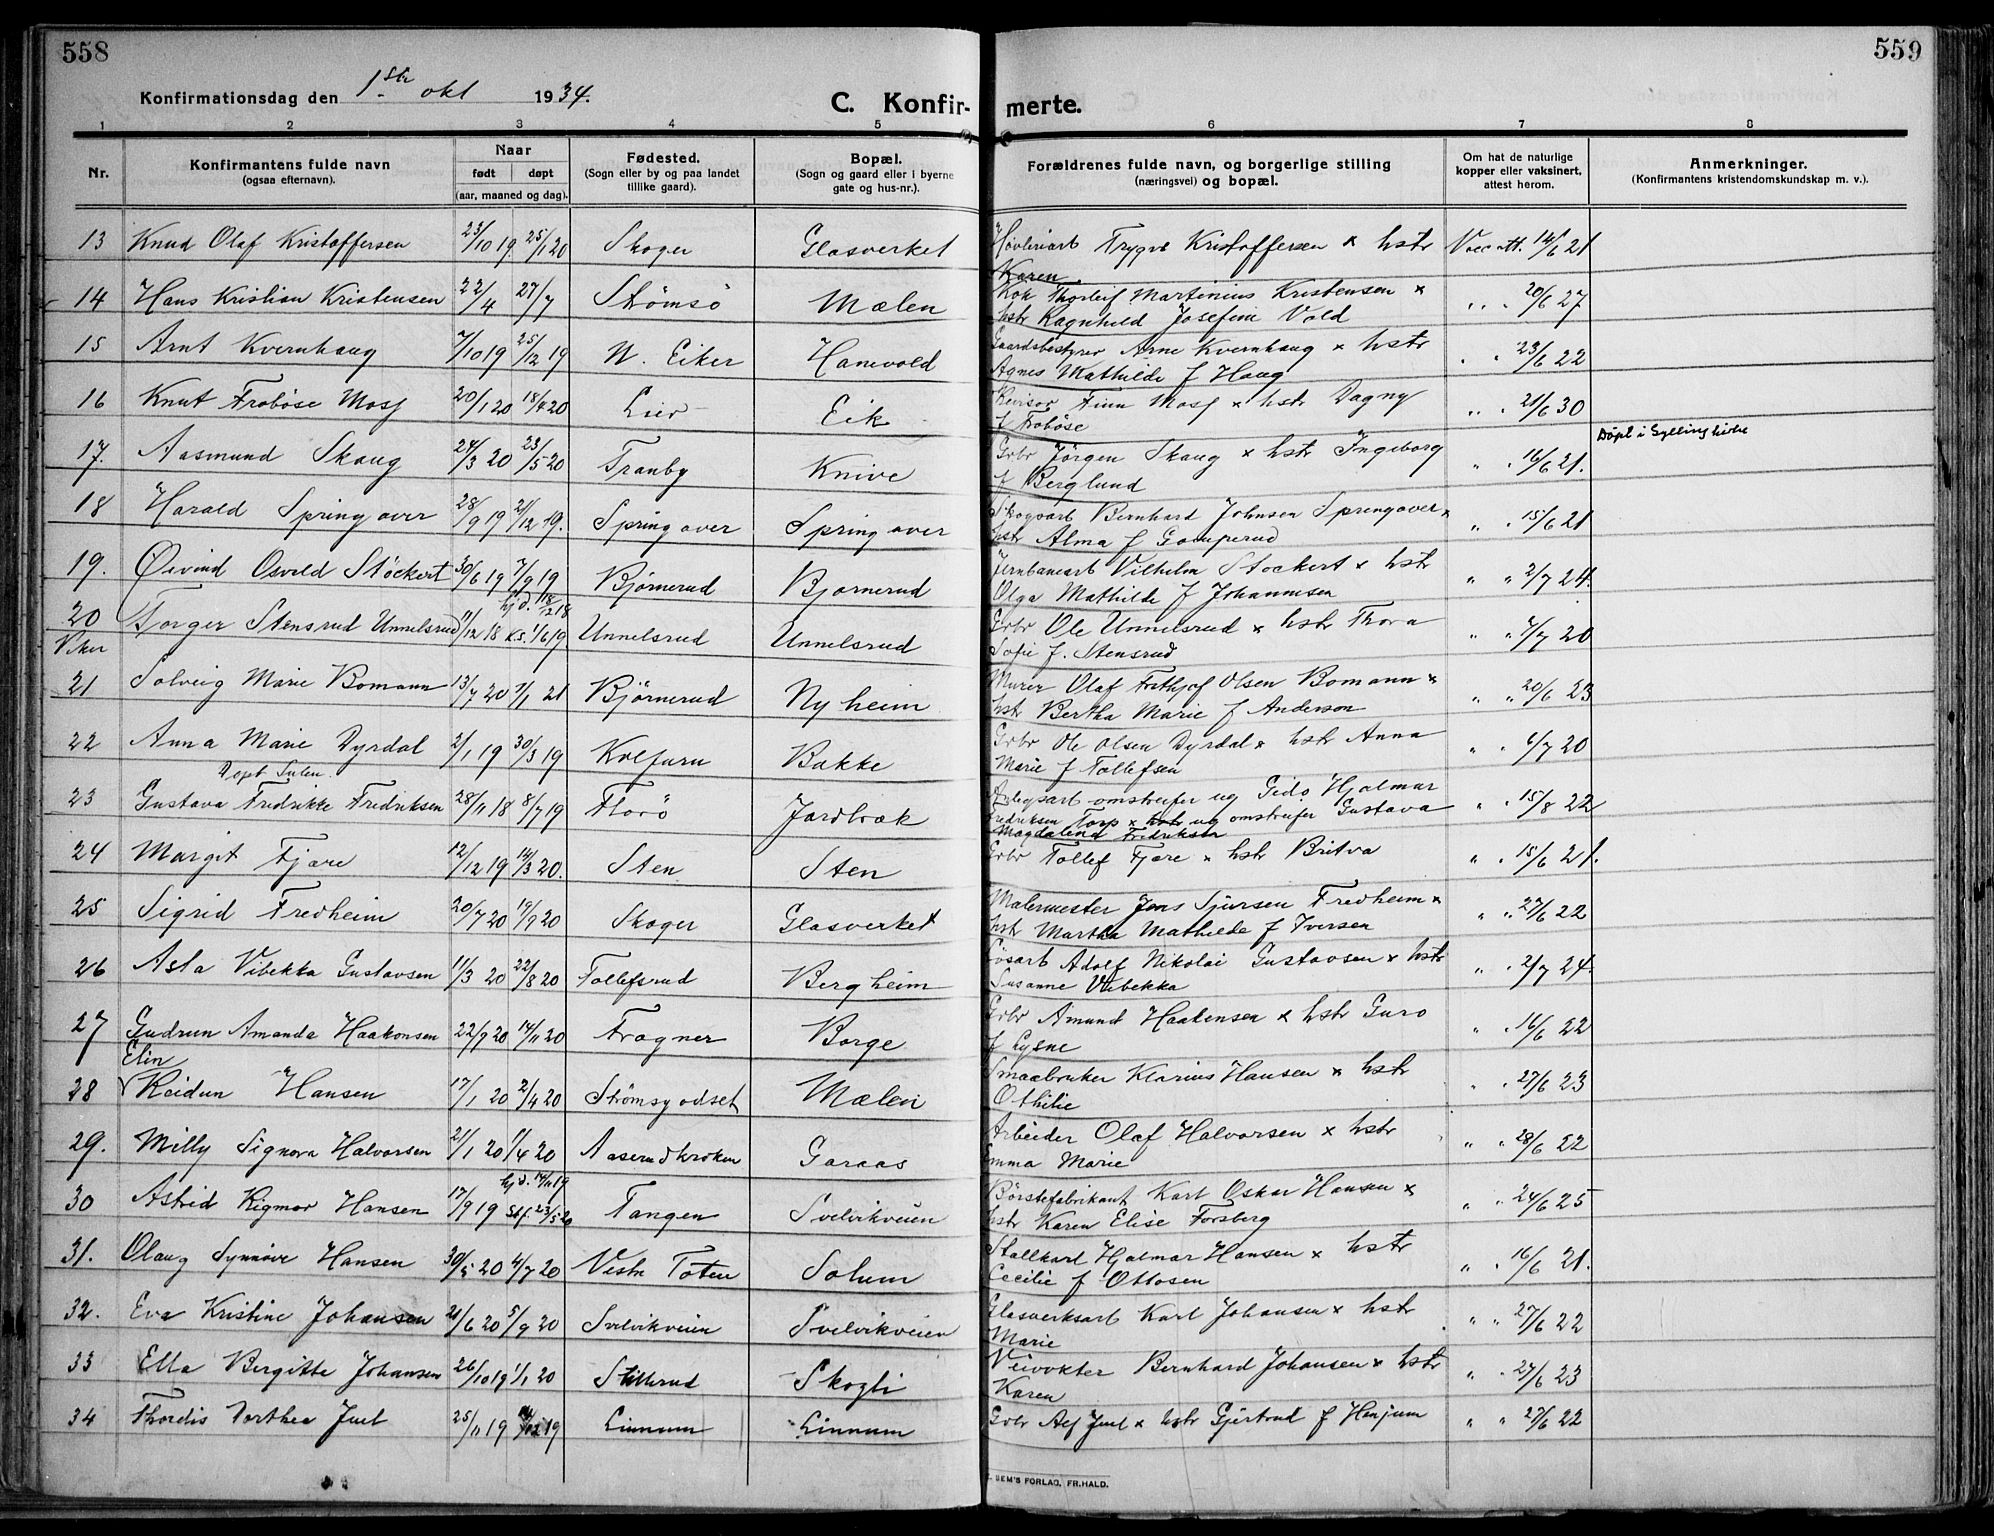 558
559
Konfirmationsdag den 1ste okt 1934.
C. Konfir-merte.
1 2 3 4 5 6 7 8
Nr. Konfirmantens fulde navn (ogsaa efternavn). Naar født døpt (aar, maaned og dag). Fødested. (Sogn eller by og paa landet tillike gaard). Bopæl. (Sogn og gaard eller i byerne gate og hus-nr.). Forældrenes fulde navn, og borgerlige stilling (næringsvei) og bopæl. Om hat de naturlige kopper eller vaksinert, attest herom. Anmerkninger. (Konfirmantens kristendomskundskap m. v.).
13 Knud Olaf Kristoffersen 23/10 19. 25/1 20 Skoger Glasverket Høvleriarb Trygve Kristoffersen x hstr Vacc att. 14/6 21
Karen
14 Hans Kristian Kristensen 22/4 27/7 Strømsö Mælen Kok Thorleif Martinius Kristensen x " " 20/6 27
hstr Ragnhild Josefine Vold
15 Arnt Kvernhaug 7/10 19 25/12 19 N. Eiker Hanevold Gaardsbestyrer Arne Kvernhaug x hstr " " 23/6 22
Agnes Mathilde f Haug
16 Knut Frobøse Mosf 20/1 20 18/4 20 Lier Eik Revisor Finn Mosf x hstr Dagny " " 21/6 30
f Frobøse
17. Aasmund Skaug 24/3 20 23/5 20 Tranby Knive Grbr Jørgen Skaug x hstr Ingeborg " " 16/6 21. Döpt i Sylling kirke
f Berglund
18 Harald Springover 28/9 19 21/12 19. Springover Springover Skogsarb Bernhard Johnsen Springover x " " 15/6 21
hstr Alma f Gamperud
19. Øivind Osvald Stöckert 30/6 19 7/9 19 Bjørnerud Bjørnerud Jernbanearb Vilhelm Stöckert x hstr " " 2/7 24.
Olga Mathilde f Johannesen
20 Torger Stensrud Unnelsrud 11/12 18 hjd. 18/12 18 ks. 1/6 19. Unnelsrud Unnelsrud Grbr Ole Unnelsrud x hstr Thora " " 7/7 20
Viker Sofie f. Stensrud
21 Solveig Marie Bomann 13/7 20 1/1 21 Björnerud Nyheim Murer Olaf Frithjof Olsen Bomann x " " 20/6 23
hstr Bertha Marie f Anderson
22 Anna Marie Dyrdal 2/1 19 30/3 19 Bakke Grbr Ole Olsen Dyrdal x hstr Anna " " 6/7 20
Marie f Tollefsen
Døpt Sulen.
23 Gustava Fredrikke Fredriksen 28/11 18 8/7 19 Florö omstreifer ug Hjalmar " " 15/8 22
Fredriksen Torp x hstr ug omstreifer Gustava
Magdalena Fredriksen
24 Margit Fjære 12/12 19 14/3 20. Sten Sten Grbr Tollef Fjære x hstr Britva " " 15/6 21.
25 Sigrid Fredheim 20/7 20 19/9 20 Skoger Glasverket Malermester Jens Sjursen Fredheim x " " 27/6 22
hstr Martha Mathilde f Iversen
26 Asta Vibekka Gustavsen 11/3 20 22/8 20 Tollefsrud Bergheim Løsarb Adolf Nikolai Gustavsen x hstr " " 2/7 24.
Susanne Vibekka
27 Gudrun Amanda Haakonsen 22/9 20 14/11 20 Fragner Borge Grbr Amund Haakensen x hstr Guro " " 16/6 22
f Lysne
Elin
28 Reidun Hansen 17/1 20 2/4 20 Strømsgodset Mælen Smaabruker Klarius Hansen x hstr " " 27/6 23
Othilie
29. Milly Signora Halvorsen 21/1 20 1/4 20 Aaserudkroken Garaas Arbeider Olaf Halvorsen x hstr " " 28/6 22
Emma Marie
30 Astrid Rigmor Hansen 17/9 19 hjd. 14/11 19 Stf. 23/5 20 Tangen Svelvikveien Børstefabrikant Karl Oskar Hansen x " " 24/6 25
hstr Karen Elise Forsberg
31. Olaug Synnöve Hansen 30/5 20 4/7 20 Vestre Toten Solum Stallkarl Hjalmar Hansen x hstr " " 16/6 21.
Cecilie f Ottosen
32. Eva Kristine Johansen 21/6 20 5/9 20 Svelvikveien Svelvikveien Glasverksarb Karl Johansen x hstr " " 27/6 22
Marie
33 Ella Bergitte Johansen 26/10 19 1/1 20 Stillerud Skogli Veivokter Bernhard Johansen x hstr " " 27/6 23
Karen
34 Thordis Dorthea Juel 25/11 19 Linnum Linnum Grbr Alf Juel x hstr Gjertrud f Henjum " " 27/6 22
SEM'S FORLAG, FR.HALD.